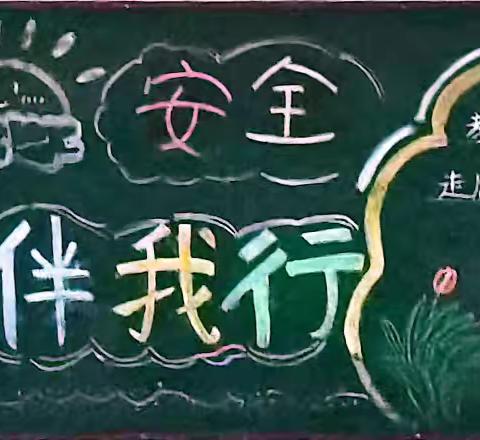 安全
伴我行
走